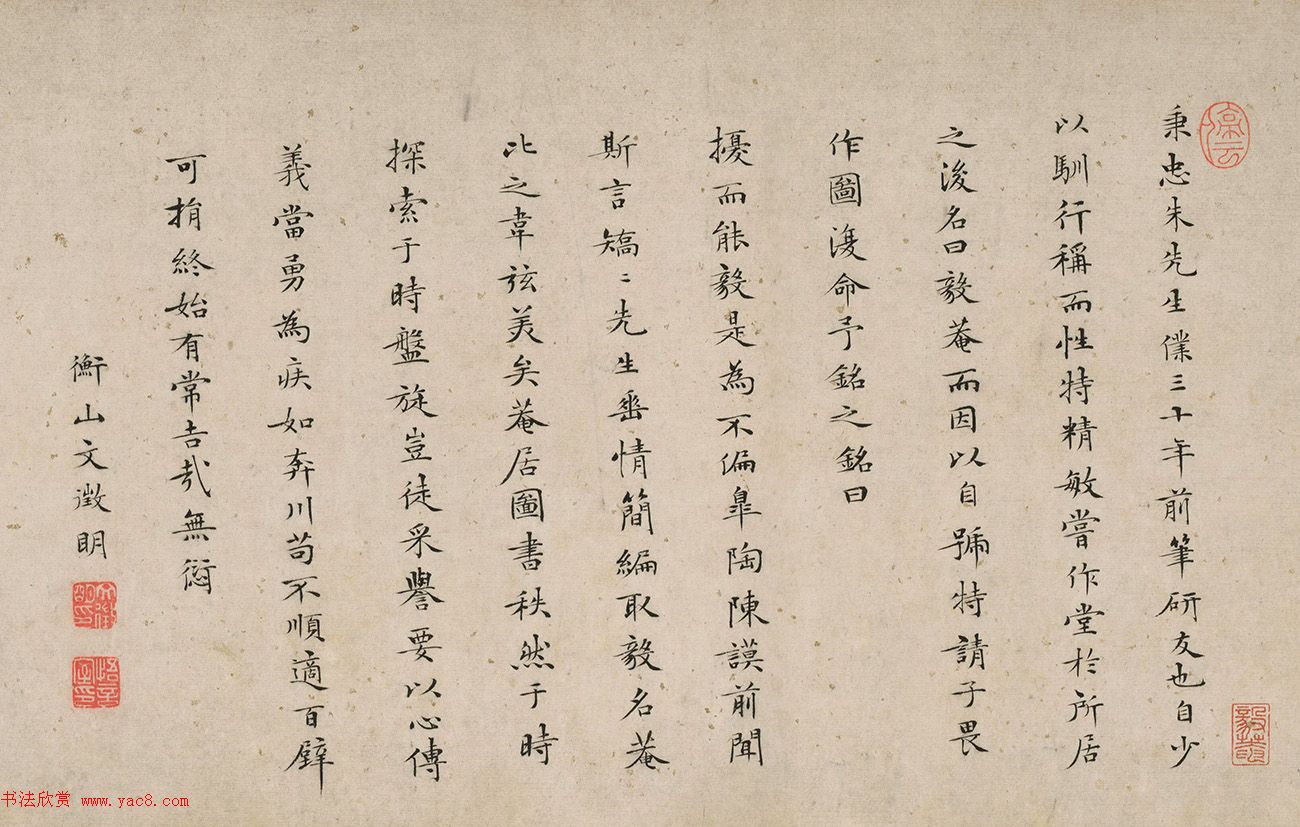 秉忠朱先生僕三十年前筆研友也自少
以馴行稱而性特精敏嘗作堂於所居
之後名曰毅菴而因以自號特請子畏
作圖復命予銘之銘曰
擾而能毅是為不偏皐陶陳謨前聞
斯言矯〻先生垂情簡編取毅名菴
比之韋弦美矣菴居圖書秩然于時
探索于時盤旋豈徒采譽要以心傳
義當勇為疾如奔川苟不順適百璧
可捐終始有常吉哉無愆
衡山文徵明
文徵明印
悟言室印
停云
毅菴
书法欣赏 www.yac8.com